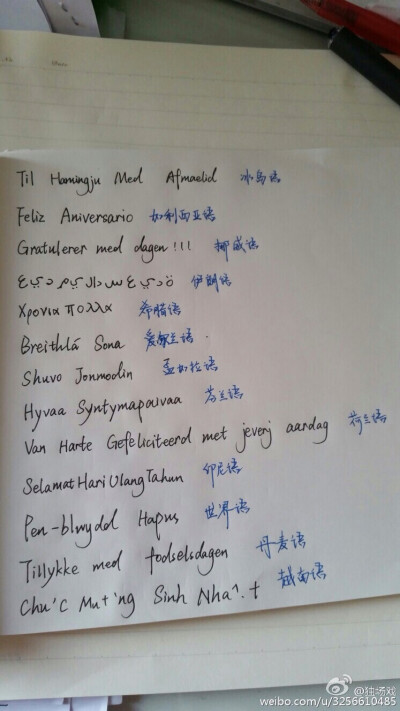 Til Hamingju Med Afmaelid 冰岛语
Feliz Aniversario 加利西亚语
Gratulerer med dagen!!! 挪威语
伊朗语
Χρονια πολλα 希腊语
Breithlá Sona 爱尔兰语
Shuvo Jonmodin 孟加拉语
Hyvaa Syntymapaivaa 芬兰语
Van Harte Gefeliciteerd met jeverj aardag 荷兰语
Selamat Hari Ulang Tahun 印尼语
Pen-blwydd Hapus 世界语
Tillykke med fodselsdagen 丹麦语
Chu'c Mu+'ng Sinh Nha^.t 越南语
@独场戏
weibo.com/u/3256610485